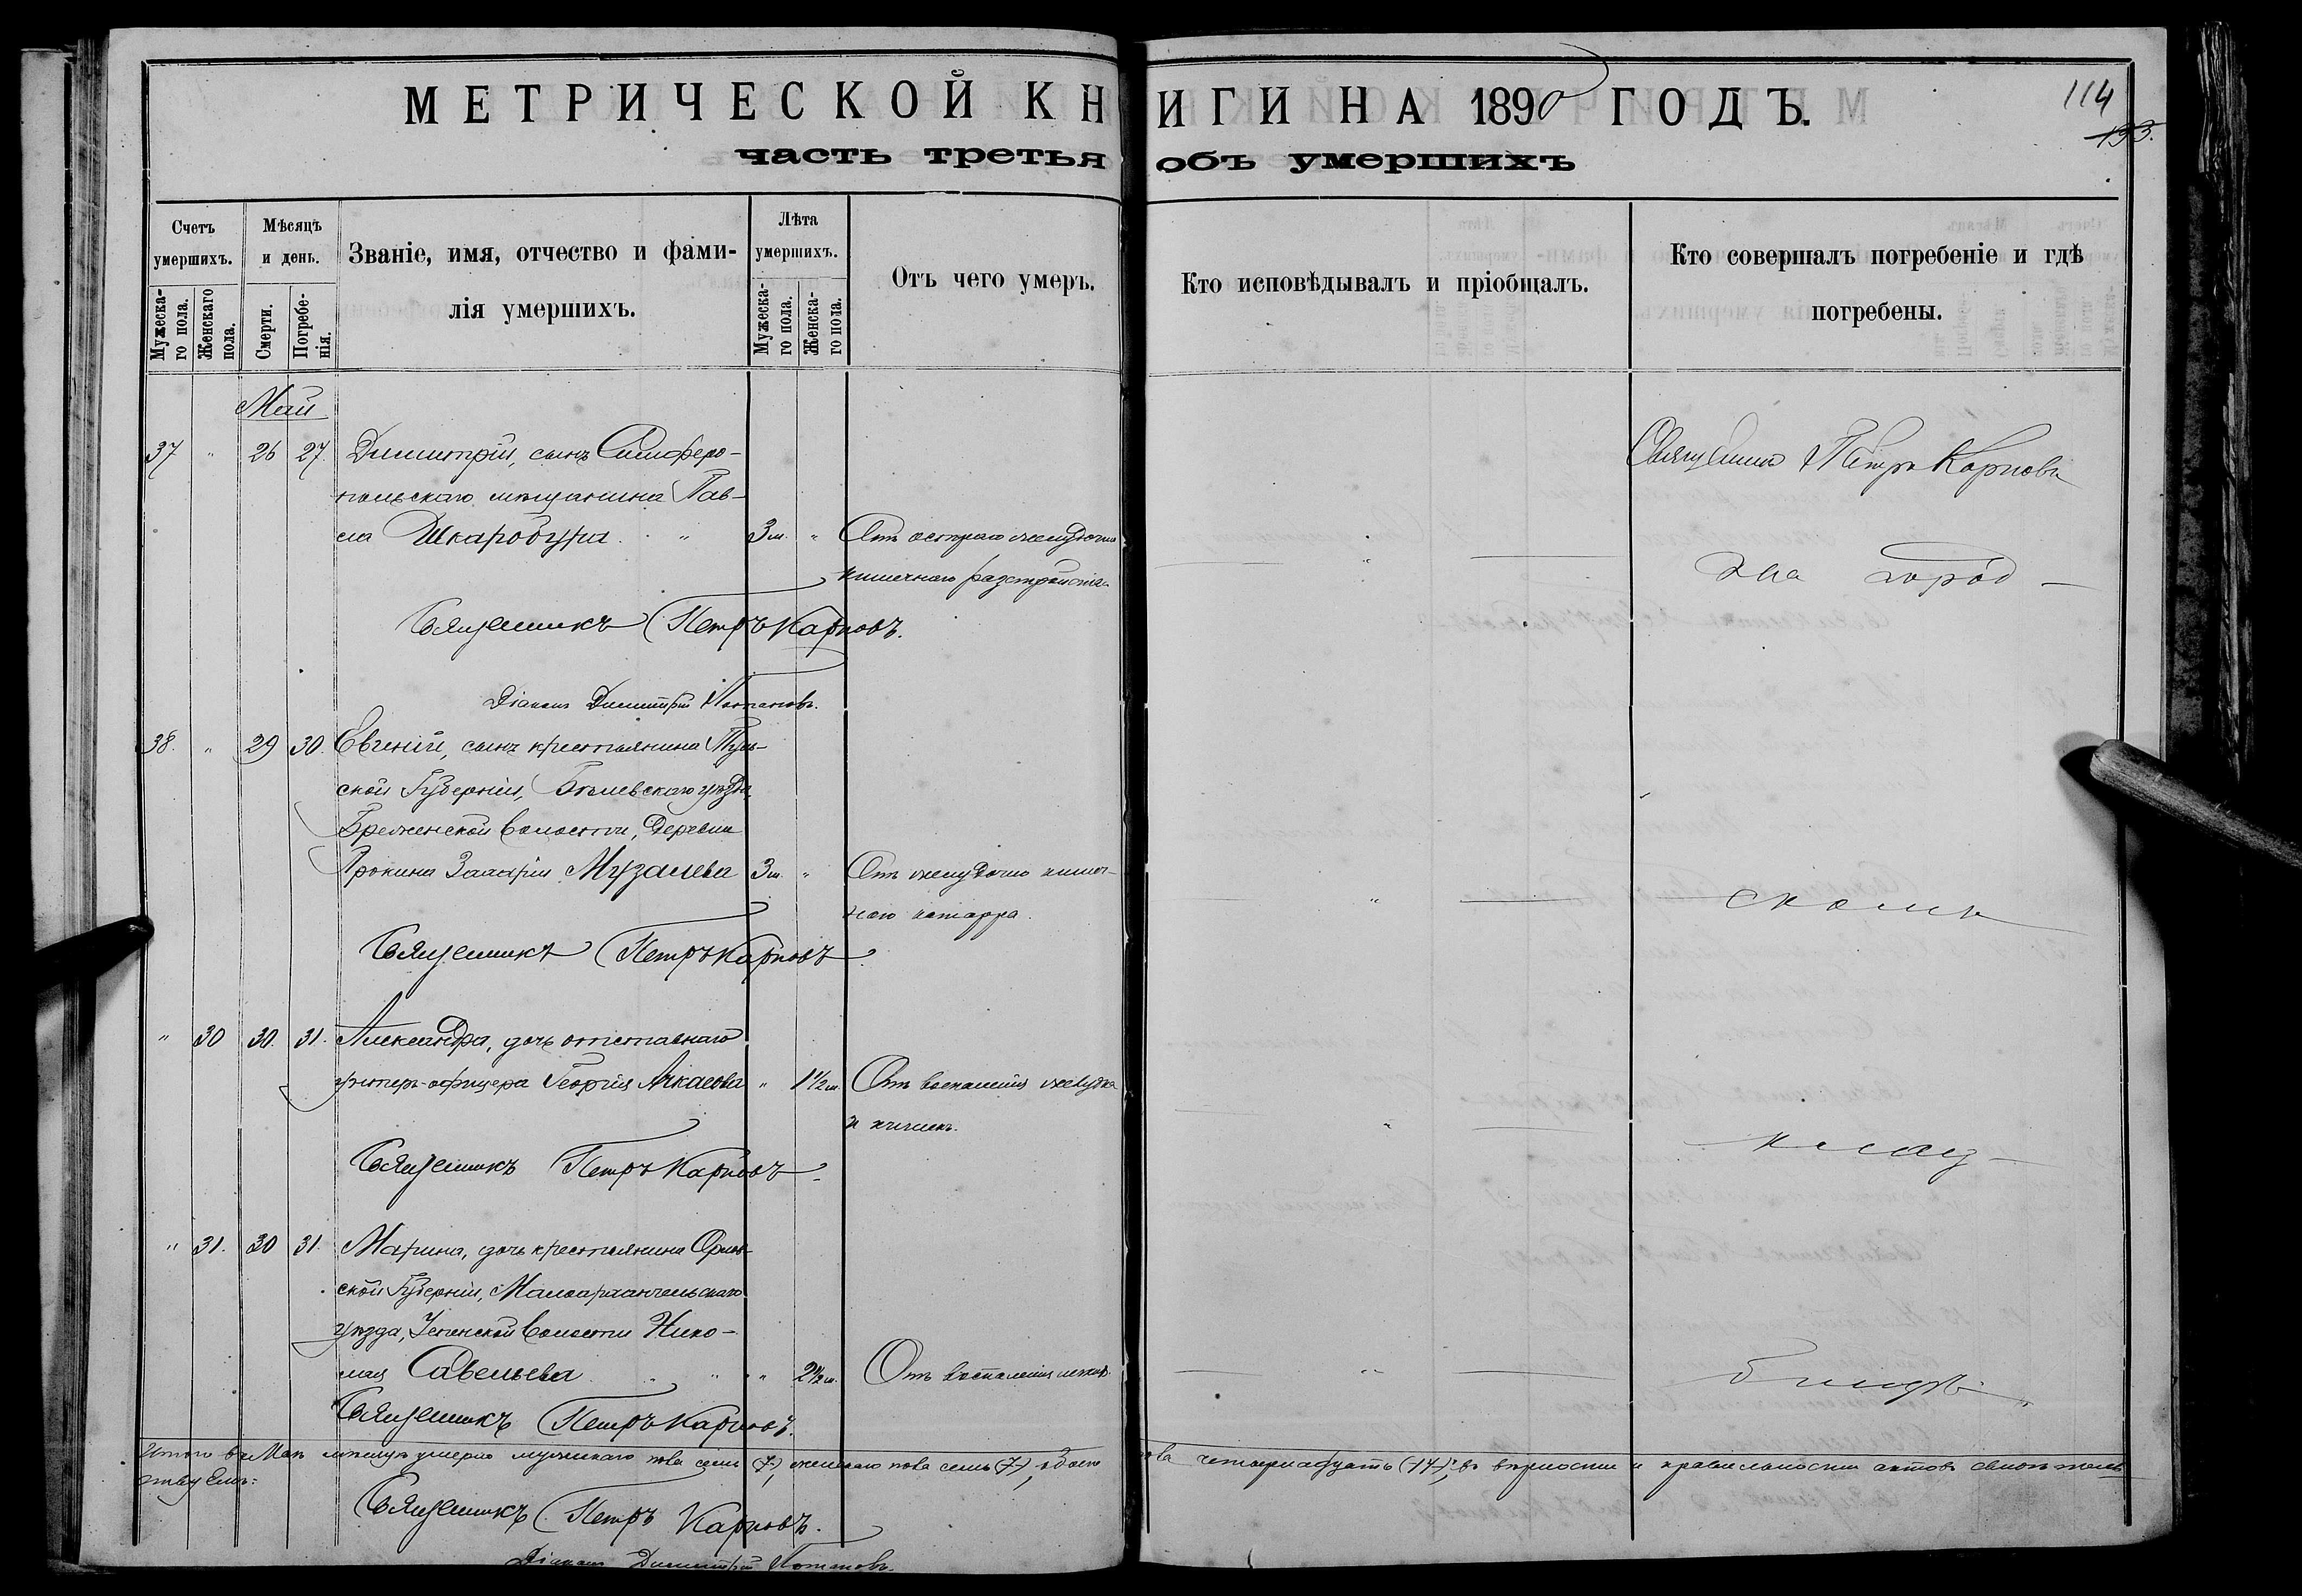 МЕТРИЧЕСКОЙ КНИГИ НА 1890 ГОДЪ.
114
193.
часть третья объ умершихъ
Счетъ умершихъ.
Мужескаго пола.
Женскаго пола.
Мѣсяцъ и день.
Смерти.
Погребенія.
Званіе, имя, отчество и фамилія умершихъ.
Лѣта умершихъ.
Мужескаго пола.
Женскаго пола.
Отъ чего умеръ.
Кто исповѣдывалъ и пріобщалъ.
Кто совершалъ погребеніе и гдѣ погребены.
Май
37 " 26 27. Димитрій, сынъ Симферо-
польскаго мѣщанина Пав-
ла Шкаробура " 3 м. " Отъ остраго желудочно
кишечнаго разстройства.
Священникъ Петръ Карповъ
на город-
Священникъ Петръ Карповъ.
Діаконъ Димитрій Потаповъ.
38. " 29 30. Евгеній, сынъ крестьянина Туль-
ской Губерніи, Бѣлевскаго уѣзда,
волости, деревни
Музалева 3 м. " Отъ желудочно кишеч-
наго катарра.
" скомъ
Священникъ Петръ Карповъ.
" 30 30. 31. Александра, дочь отставнаго
унтеръ-офицера Георгія " 1 1/2 м. Отъ воспаленія желудка
и кишекъ.
" клад-
Священникъ Петръ Карповъ.
" 31. 30 31. Марина, дочь крестьянина Орлов-
ской Губерніи, Малоархангельскаго
уѣзда, волости Нико-
лая Савельева " " 2 1/2 м. Отъ воспаленія легкихъ.
" бищѣ.
Священникъ Петръ Карповъ.
Итого въ Маѣ мѣсяцѣ умерло мужескаго пола семь (7), женскаго пола семь (7), обоего пола четырнадцать (14); въ вѣрности и правильности актовъ свидѣтель-
ствуемъ:
Священникъ Петръ Карповъ.
Діаконъ Димитрій Потаповъ.